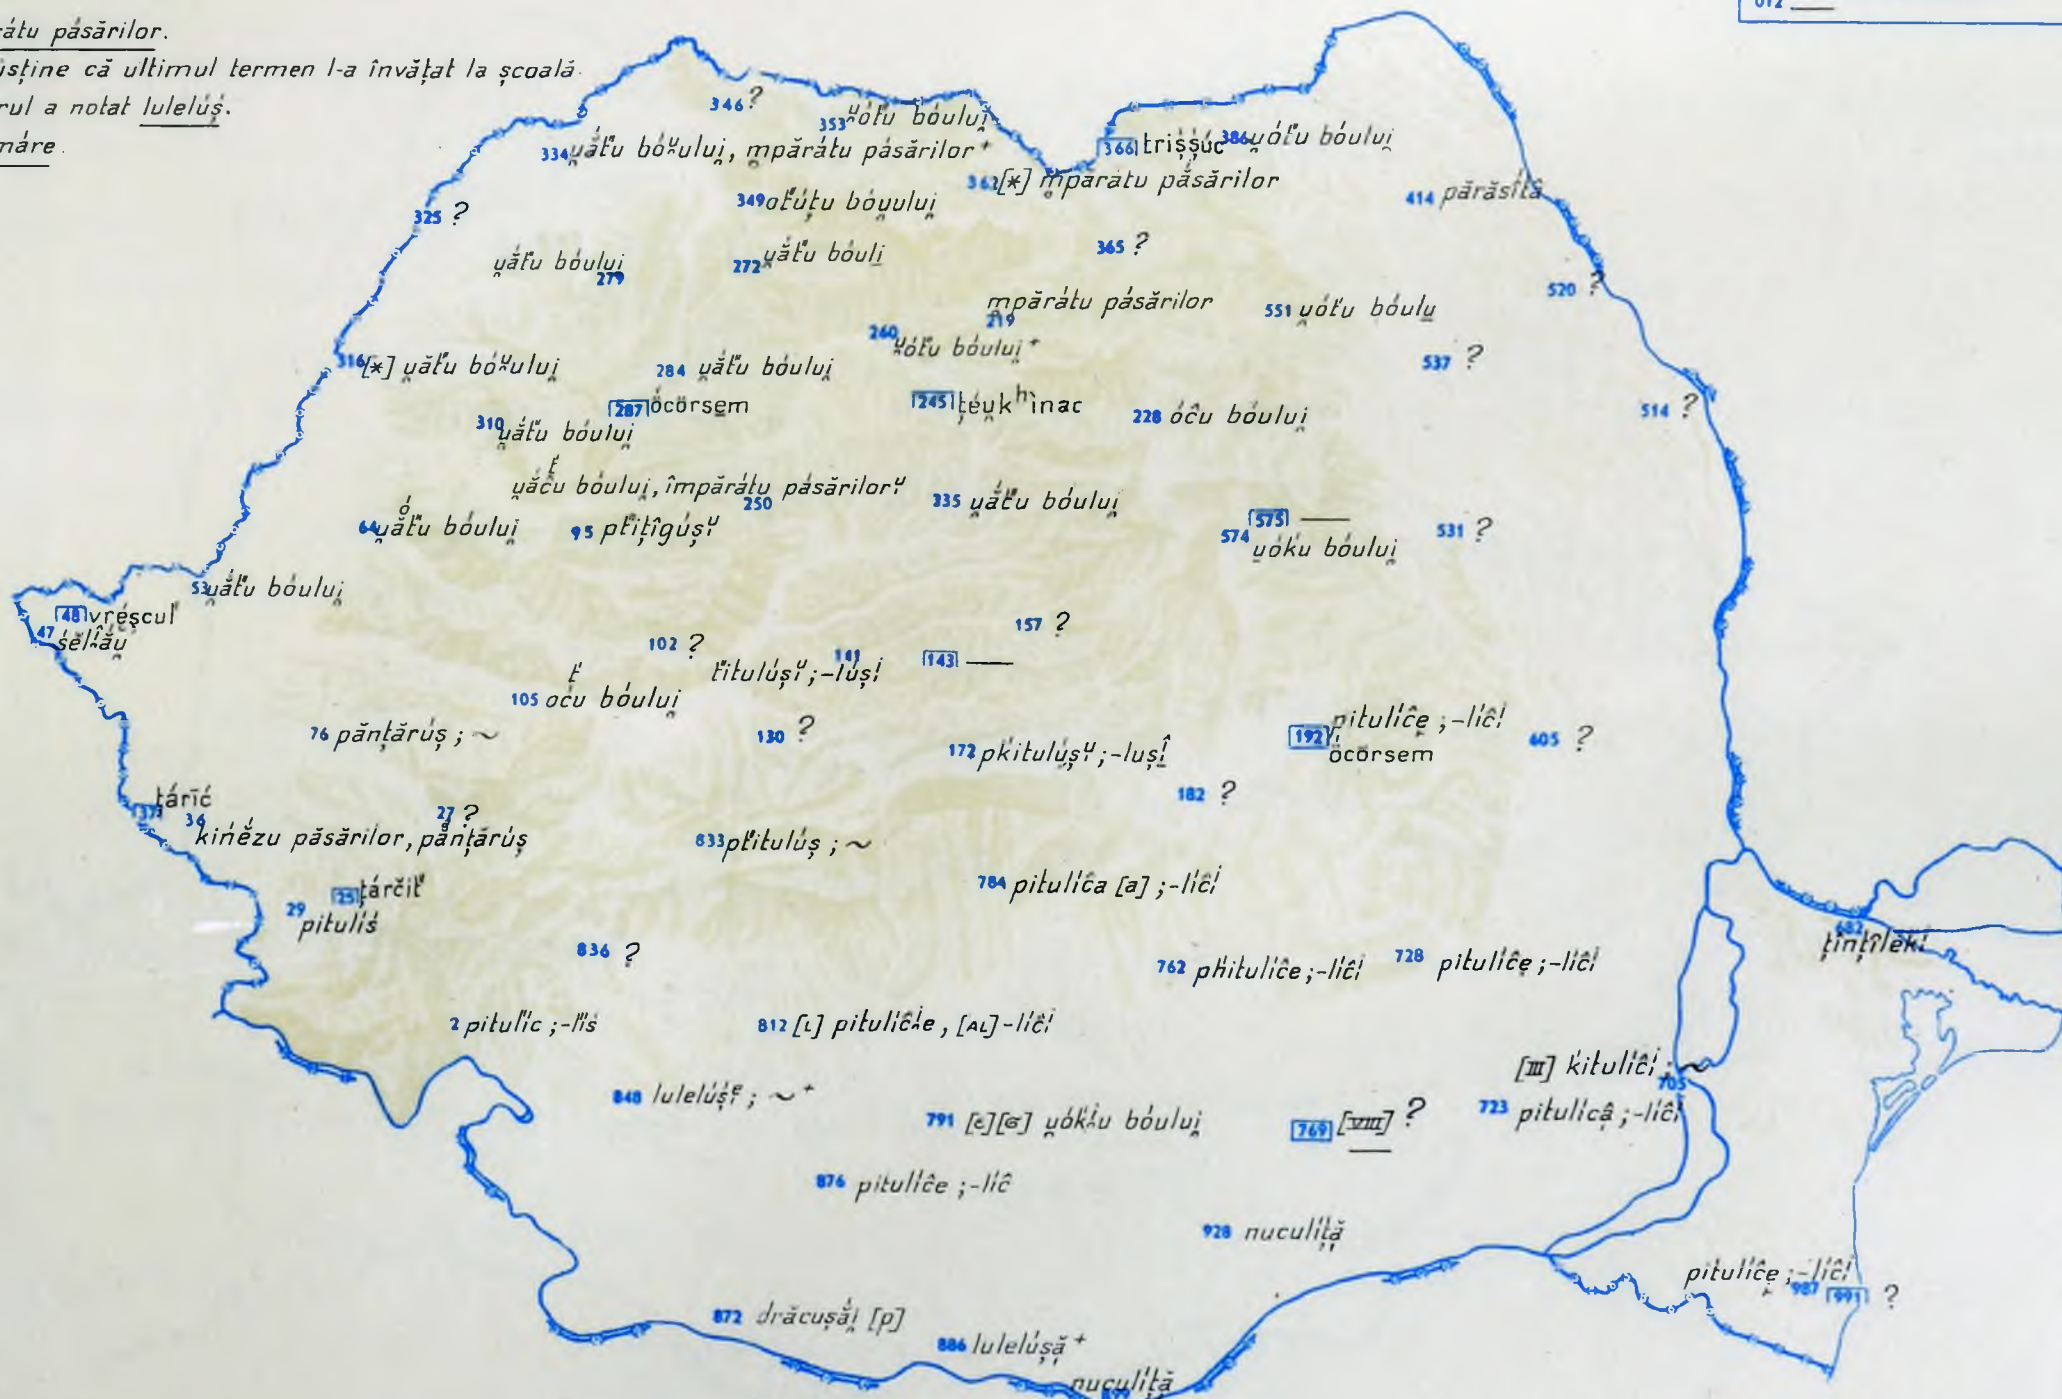 rátu pásărilor.
usține că ultimul termen l-a învățat la școală.
rul a notat lulelúș.
máre.
012 ___
346 ?
353 u̯ót́u bóului̯
334 u̯ắt́u bóᵘului̯, m̥părátu pásărilor⁺
366 trișșúc
386 u̯ót́u bóului̯
362 [*] m̥părátu pắsărilor
349 ot́úțu bóu̯ului̯
414 părăsítâ
325 ?
365 ?
u̯ắt́u bóului̯
279
272 u̯ắt́u bóuli̯
520 ?
m̥părátu pásărilor
219
551 u̯ót́u bóulu̯
260 u̯ót́u bóului̯⁺
537 ?
316 [*] u̯ắt́u bóᵘului̯
284 u̯ắt́u bóului̯
287 öcörsem
245 țéu̯kʰìnac
228 óĉu bóului̯
514 ?
310 u̯ắt́u bóului̯
u̯ắĉu bóului̯, împărátu pásărilorᵘ
250
235 u̯ắt́u bóului̯
64 u̯ắt́u bóului̯
95 pt́ițîgúșᵘ
575 ___
574 u̯óḱu bóului̯
531 ?
53 u̯ắt́u bóului̯
48 vréșcul
47
157 ?
102 ?
t́itulúșᵘ ; -lúșⁱ
141
143 ___
105 oću bóului̯
76 pănțărúș ; ~
130 ?
172 pḱitulúșᵘ ; -lușî
192 pitulíĉe ; -líĉⁱ
öcörsem
605 ?
182 ?
37 țárīć
36 kińézu păsărilor, pănțărúș
27 ?
833 pt́itulúș ; ~
784 pitulíĉa [a] ; -líĉⁱ
25 țárčit́
29 pitulíś
682
țînțîlékⁱ
836 ?
762 phitulíĉe ; -líĉⁱ
728 pitulíĉe ; -líĉⁱ
2 pitulíc ; -líś
812 [L] pitulíĉⁱe, [AL] -líĉⁱ
[III] ḱitulíĉⁱ ; ~
705
848 lulelúșᵉ ; ~ ⁺
791 [c][σ] u̯óḱⁱu bóului̯
769 [VIII] ?
723 pitulícâ ; -líĉⁱ
876 pitulíĉe ; -líĉ
928 nuculíță
pitulíĉe ; -líĉⁱ
987 991 ?
872 drăcușắi̯ [p]
886 lulelúșă ⁺
nuculíță